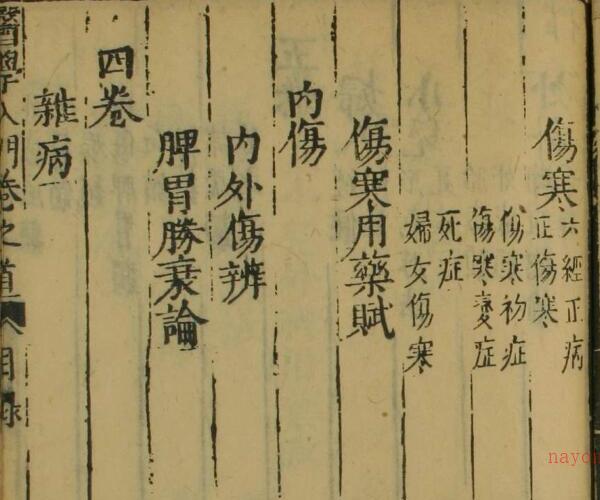 傷寒
六經正病
正傷寒
傷寒初症
傷寒變症
死症
婦女傷寒
傷寒用藥賦
内傷
内外傷辨
脾胃勝衰論
四卷
雜病
醫學入門卷之首 目錄
nayo